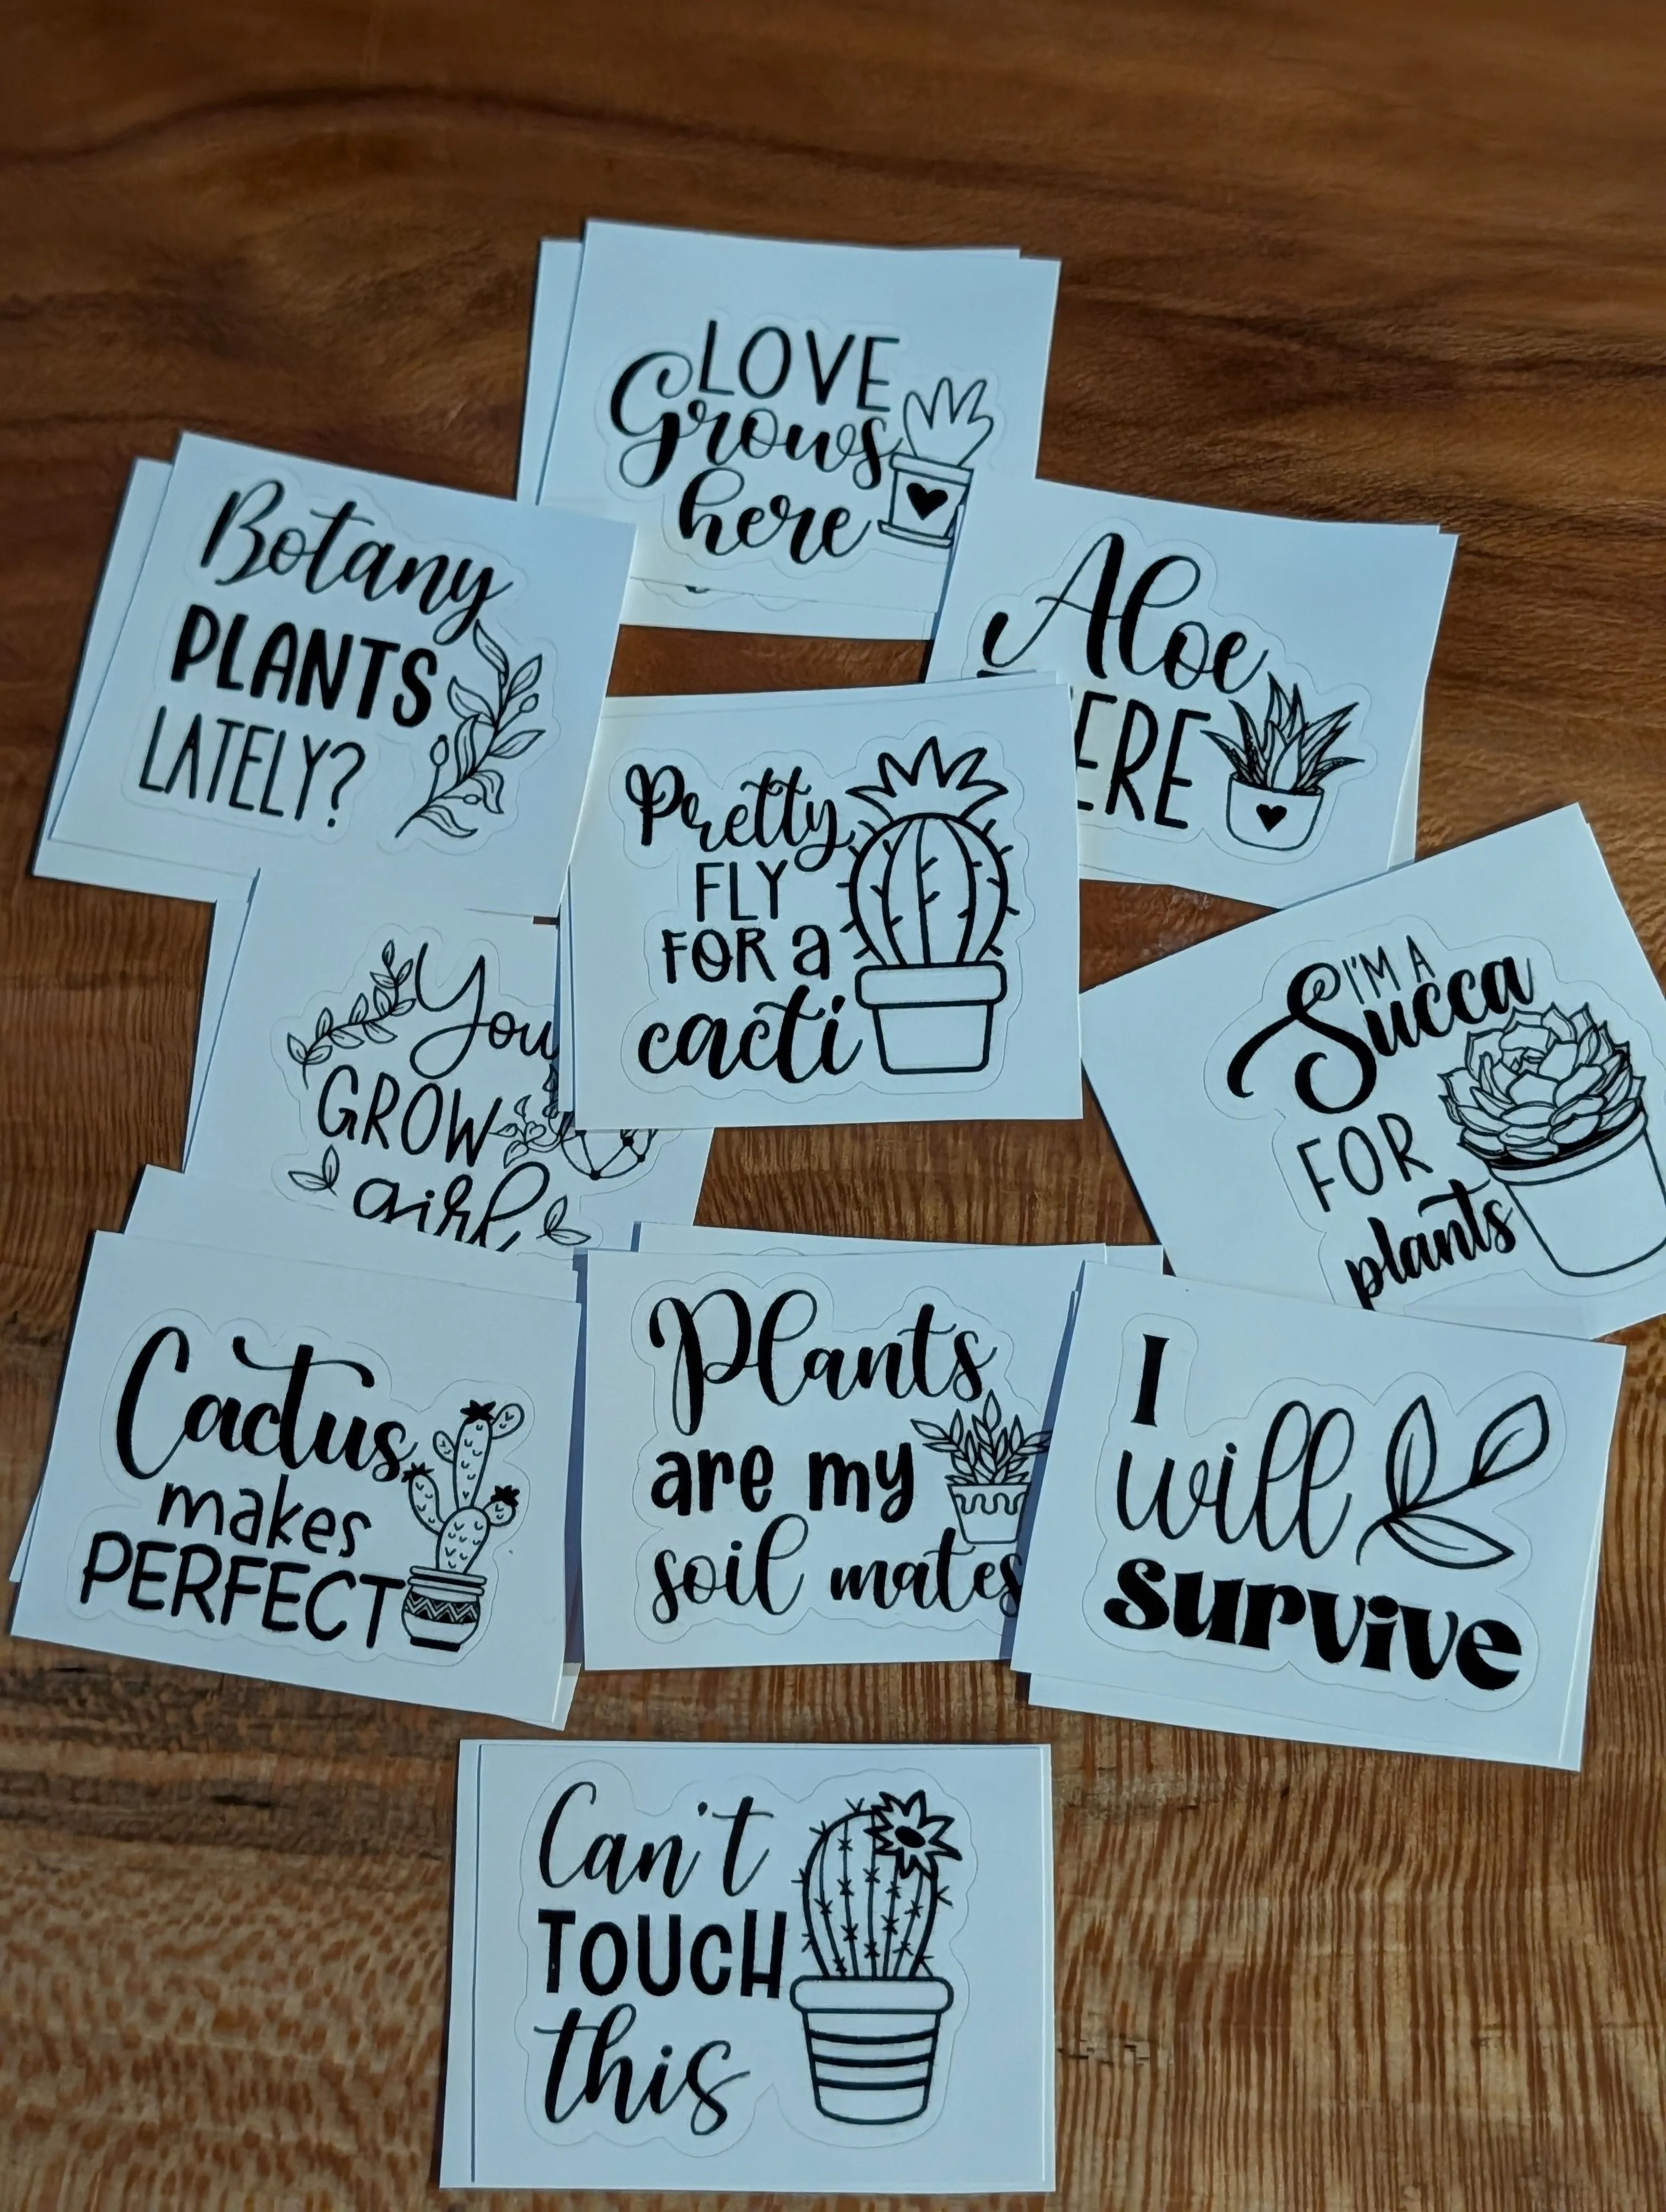 LOVE
Grows
here
Botany
PLANTS
LATELY?
Aloe
ERE
Pretty
FLY
FOR a
cacti
You
GROW
girl
I'M A
Succa
FOR
plants
Cactus
makes
PERFECT
Plants
are my
soil mates
I
will
survive
Can't
TOUCH
this